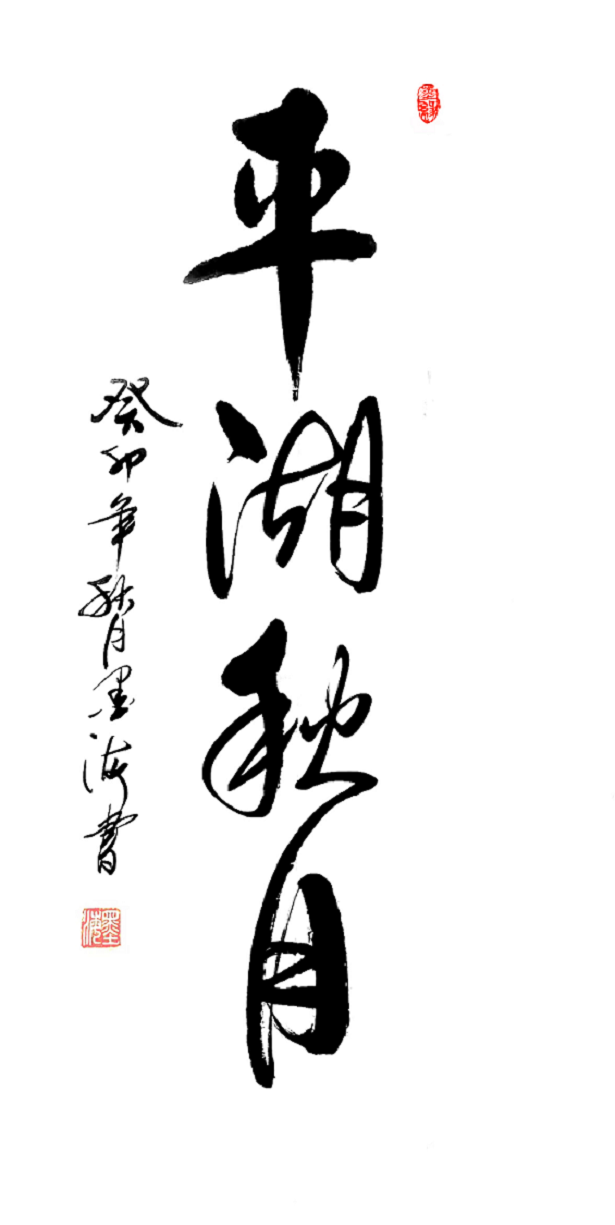 平湖秋月
癸卯年秋月墨海書
墨海